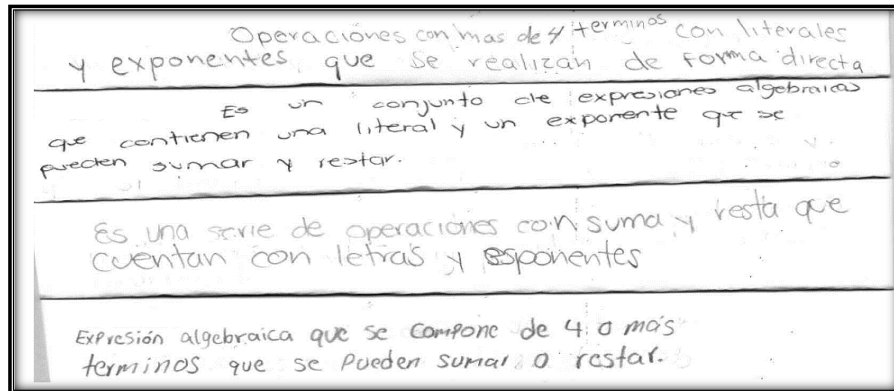 Operaciones con mas de 4 terminos con literales
y exponentes que se realizan de forma directa
Es un conjunto de expresiones algebraicas
que contienen una literal y un exponente que se
pueden sumar y restar.
Es una serie de operaciones con suma y resta que
cuentan con letras y esponentes
Expresión algebraica que se compone de 4 o más
terminos que se pueden sumar o restar.